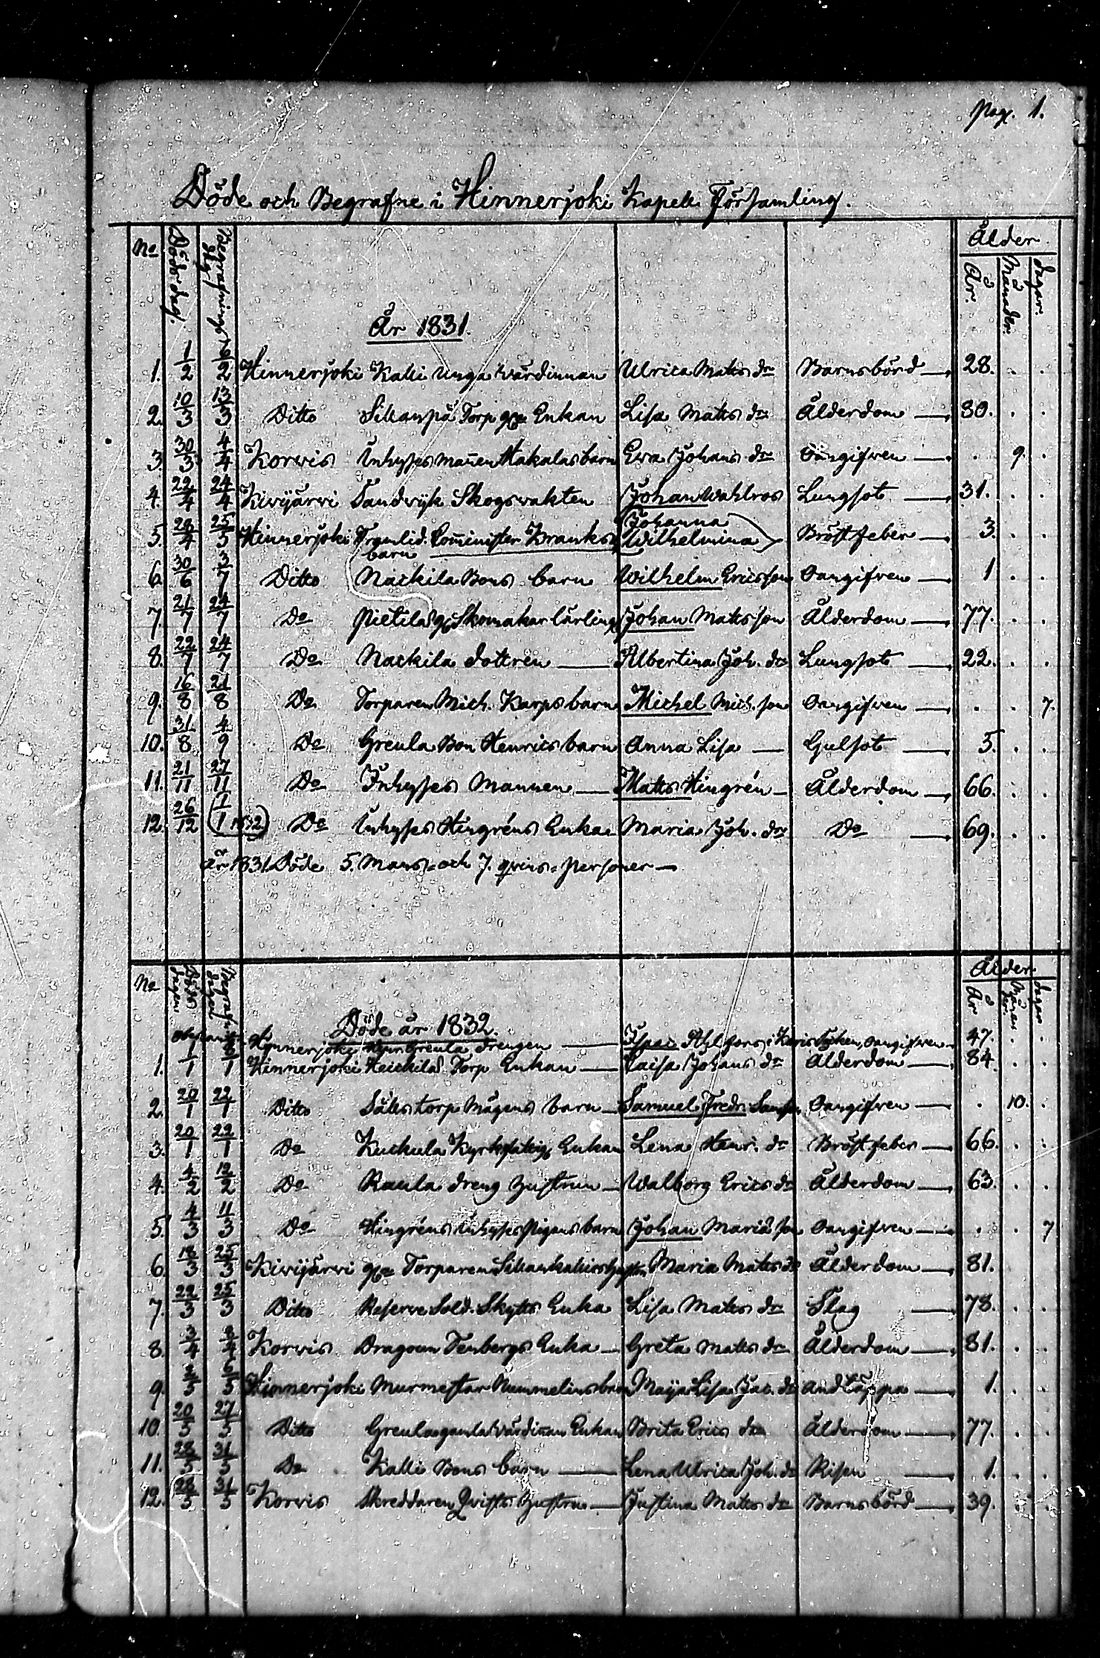 Pag. 1.
Döde och Begrafne i Hinnerjoki Kapell Församling.
No Döds dag. Begrafnings dag Ålder
År Månader. dagar.
År 1831.
1. 1/2 6/2 Hinnerjoki Kalli Unga Värdinnan Ulrica Matts dr Barnsbörd 28.
2. 10/3 13/3 Ditto Sillanpä Torp gla Enkan Lisa Matts dr Ålderdom 80.
3. 30/3 4/4 Korvis Inhyses mannen Makalas barn Eva Johans dr Oangifven 9.
4. 22/4 24/4 Kivijärvi Sandvik Skogsvakten Johan Wahlros Lungsot 31.
5. 28/4 25/5 Hinnerjoki Framlid. Comminister Kranks barn Johanna Wilhelmina Bröstfeber 3.
6. 30/6 3/7 Ditto Nackila Bons barn Wilhelm Ericsson Oangifven 1.
7. 21/7 24/7 Do Pietilä gl Skomakar lärling Johan Matts son Ålderdom 77.
8. 22/7 24/7 Do Nackila dottren Albertina Joh. dr Lungsot 22.
9. 16/8 21/8 Do Torparen Mich. Karps barn Michel Mich. son Oangifven 7.
10. 31/8 4/9 Do Greula Bon Henrics barn Anna Lisa Gulsot 5.
11. 21/11 27/11 Do Inhyses Mannen Matts Hingrén Ålderdom 66.
12. 26/12 1/1 1832 Do Inhyses Hingréns Enka Maria Joh. dr Do 69.
År 1831 Döde 5. Mans- och 7. qvins- personer
No Döds dagen Begrafn. dagen Ålder
År Måna der dagar
Döde år 1832.
Hinnerjoki Greula drengen Isaac Ahlfors, Oangifven 47.
1. 1/1 8/1 Hinnerjoki Heickilä Torp Enkan Caisa Johans dr Ålderdom 84.
2. 20/1 22/1 Ditto Säties torp Mågens barn Samuel Fredr. Oangifven 10.
3. 20/1 22/1 Do Kuckula Kyrkfattig Enkan Lena Henr. dr Bröstfeber 66.
4. 4/2 12/2 Do Raula dreng hustrun Walborg Erics dr Ålderdom 63.
5. 4/3 11/3 Do Hingréns Inhyses Pigans barn Johan Mariæ son Oangifven 7
6. 18/3 25/3 Kivijärvi gla Torparen Maria Matts dr Ålderdom 81.
7. 22/3 25/3 Ditto Reserve Sold. Skytts Enka Lisa Matts dr Slag 78.
8. 3/4 8/4 Korvis Dragoun Tenbergs Enka Greta Matts dr Ålderdom 81.
9. 2/5 6/5 Hinnerjoki Murmestar Nummelins barn Maija Lisa Jac. dr Andtäppa 1.
10. 20/5 27/5 Ditto Greula gamla Värdinnan Enkan Brita Erics dr Ålderdom 77.
11. 28/5 31/5 Do Kalli Bons barn Lena Ulrica Joh. dr Risen 1.
12. 28/5 31/5 Korvis Skreddaren Qvists hustru Justina Matts dr Barnsbörd 39.